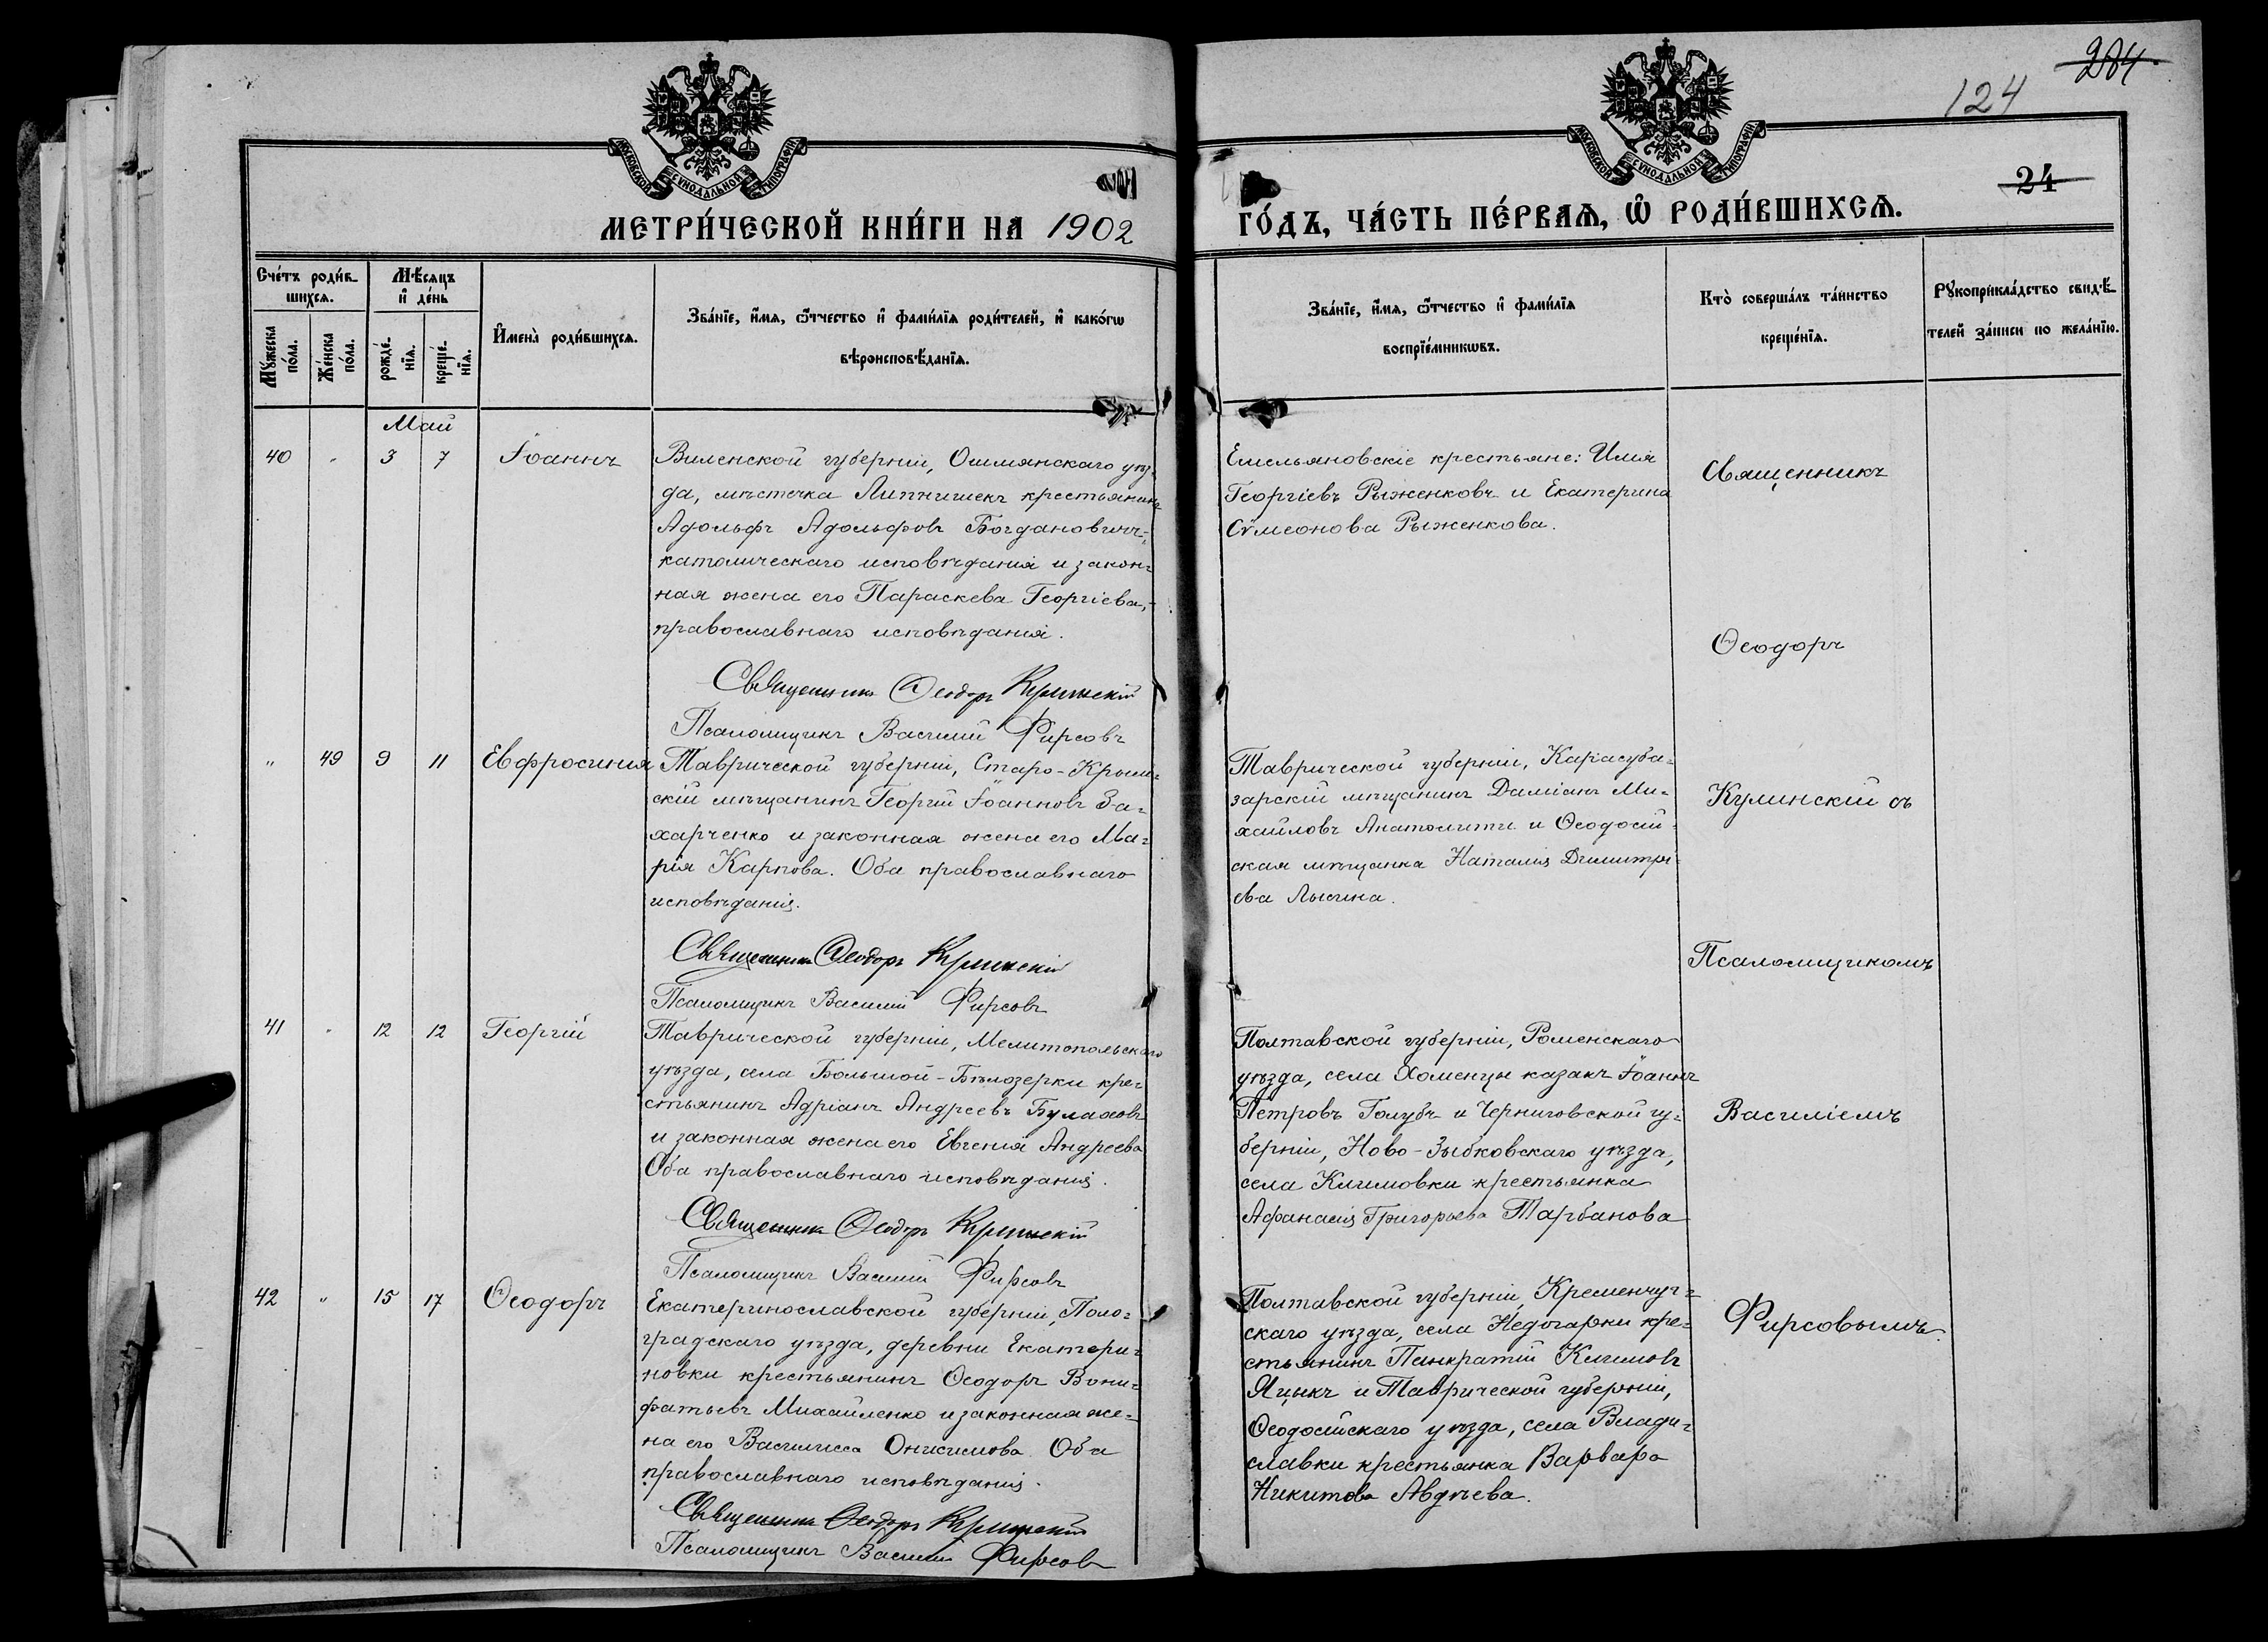 284
124
24
МОСКОВСКОЙ СУНОДАЛЬНОЙ ТИПОГРАФІИ
МОСКОВСКОЙ СУНОДАЛЬНОЙ ТИПОГРАФІИ
МЕТРИ́ЧЕСКОЙ КНИ́ГИ НА 1902
ГО́ДЪ, ЧА́СТЬ ПЕ́РВАѦ, Ѿ РОДИ́ВШИХСѦ.
Сче́тъ роди́в-
шихсѧ.
Мѣ́сѧцъ
и де́нь
Мꙋ́жеска
по́ла.
Же́нска
по́ла.
рожде́-
нїѧ.
креще́-
нїѧ.
И҆мена̀ роди́вшихсѧ.
Зва́нїе, и҆́мѧ, ѻ҆́тчество и҆ фами́лїѧ роди́телей, и҆ како́гѡ
вѣроисповѣ́данїѧ.
Зва́нїе, и҆́мѧ, ѻ҆́тчество и҆ фами́лїѧ
воспрїе́мникѡвъ.
Кто̀ соверша́лъ та́инство
креще́нїѧ.
Рꙋкоприкла́дство свидѣ́-
телей за́писи по жела́нїю.
Май
40 „ 3 7 Іоаннъ
Виленской губерніи, Ошмянскаго уѣз-
да, мѣстечка Липнишекъ крестьянинъ
Адольфъ Адольфовъ Богдановичъ,
католическаго исповѣданія и закон-
ная жена его Параскева Георгіева,
православнаго исповѣданія.
Священникъ Ѳеодоръ Кулинскій
Псаломщикъ Василій Фирсовъ
Емельяновскіе крестьяне: Илія
Георгіевъ Рыженковъ и Екатерина
Сѵмеонова Рыженкова.
Священникъ
Ѳеодоръ
„ 49 9 11 Евфросинія
Таврической губерніи, Старо-Крым-
скій мѣщанинъ Георгій Іоанновъ За-
харченко и законная жена его Ма-
рія Карпова. Оба православнаго
исповѣданія.
Священникъ Ѳеодоръ Кулинскій
Псаломщикъ Василій Фирсовъ
Таврической губерніи, Карасуба-
зарскій мѣщанинъ Даміанъ Ми-
хайловъ и Ѳеодосій-
ская мѣщанка Наталія Димитрі-
ева Лысина.
Кулинскій съ
Псаломщикомъ
41 „ 12 12 Георгій
Таврической губерніи, Мелитопольскаго
уѣзда, села Большой-Бѣлозерки кре-
стьянинъ Адріанъ Андреевъ Булаховъ
и законная жена его Евгенія Андреева
Оба православнаго исповѣданія.
Священникъ Ѳеодоръ Кулинскій
Псаломщикъ Василій Фирсовъ
Полтавской губерніи, Роменскаго
уѣзда, села Хоменцы казакъ Іоаннъ
Петровъ Голубъ и Черниговской гу-
берніи, Ново-Зыбковскаго уѣзда,
села Климовки крестьянка
Афанасія Григорьева Тарбанова
Василіемъ
42 „ 15 17 Ѳеодоръ
Екатеринославской губерніи,
градскаго уѣзда, деревни Екатери-
новки крестьянинъ Ѳеодоръ Вони-
фатьевъ Михайленко и законная же-
на его Василисса Онисимова. Оба
православнаго исповѣданія.
Священникъ Ѳеодоръ Кулинскій
Псаломщикъ Василій Фирсовъ
Полтавской губерніи, Кременчуг-
скаго уѣзда, села Недогарки кре-
стьянинъ Панкратій Климовъ
Яцыкъ и Таврической губерніи,
Ѳеодосійскаго уѣзда, села Влади-
славки крестьянка Варвара
Никитова Авдѣева.
Фирсовымъ.